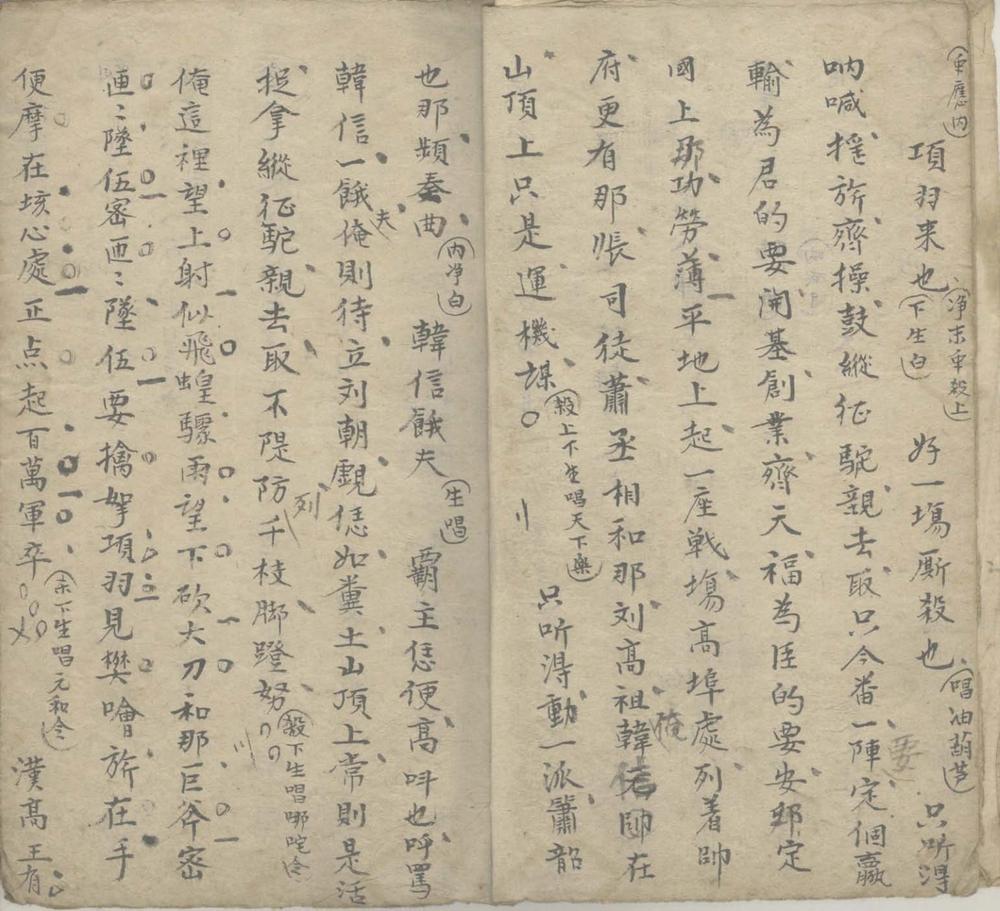 (车應内)項羽来也(净末车殺上)(下生白)好一塲厮殺也(唱油葫芦)只听得
呐喊摇旂齊操鼓縱征駝親去取只今番一陣定個贏
輸為君的要開基創業齊天福為臣的要安邦定
國上那功勞薄平地上起一座戦塲高埠處列着帥
府更有那帳司徒蕭丞相和那刘高祖韓信帥俺在
山頂上只是運機謀(殺上下生唱天下樂)只听得動一派簫韶
也那頻奏曲(内净白)韓信餓夫(生唱)霸主恁便高呌也呼罵
韓信一餓夫俺則待立刘朝覷恁如糞土山頂上常則是活
捉拿縱征駝親去取不隄防列千枝脚蹬弩(殺下生唱哪咤令)
俺這裡望上射似飛蝗驟雨望下砍大刀和那巨斧密
匝〻墜伍密匝〻墜伍要擒拏項羽見樊噲旂在手
便摩在垓心處正点起百萬軍卒(末下生唱元和令)漢高王有